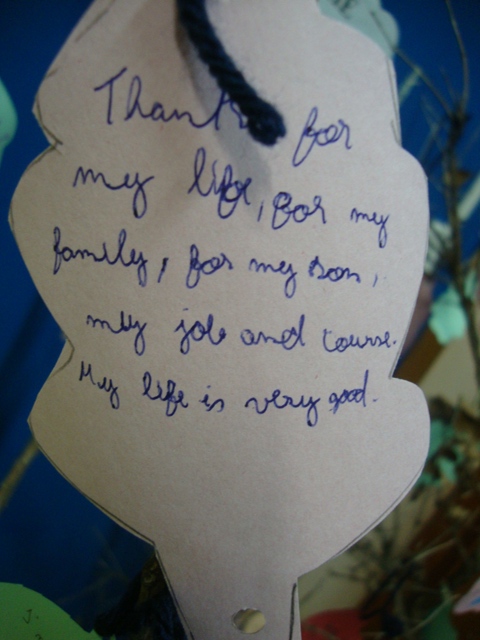 Thanks for
my life, for my
family, for my son,
my job and course.
My life is very good.